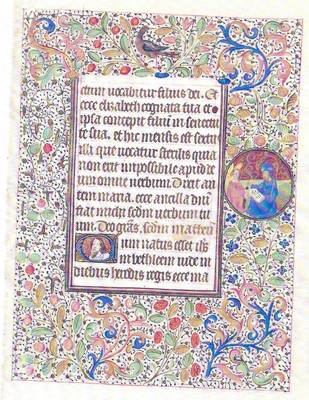 ctum vocabitur filius dei. Et
ecce elizabeth cognata tua et
ipsa concepit filiū in senectu
te sua. et hic mensis est sextꝰ
illi que vocatur sterilis quia
non erit impossibile apud de
um omne verbum. Dixit au
tem maria. ecce ancilla dm̄
fiat michi sc̄dm verbum tu
um. Deo grās. sc̄dm matheū
Cum natus esset ihs̄
in bethleem iude in
diebus herodis regis ecce ma